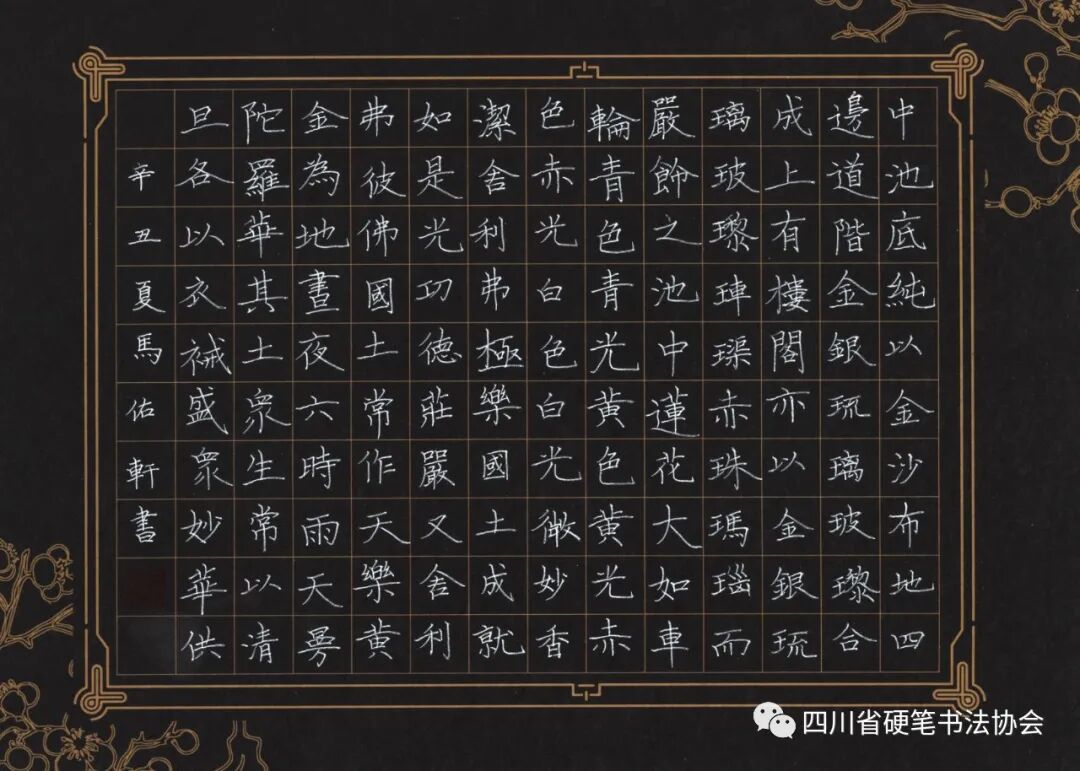 中池底純以金沙布地四
邊道階金銀琉璃玻瓈合
成上有樓閣亦以金銀琉
璃玻瓈𤥭璖赤珠瑪瑙而
嚴飾之池中蓮花大如車
輪青色青光黃色黃光赤
色赤光白色白光微妙香
潔舍利弗極樂國土成就
如是光功德莊嚴又舍利
弗彼佛國土常作天樂黃
金為地晝夜六時雨天曼
陀羅華其土眾生常以清
旦各以衣祴盛眾妙華供
辛丑夏馬佑軒書
四川省硬笔书法协会